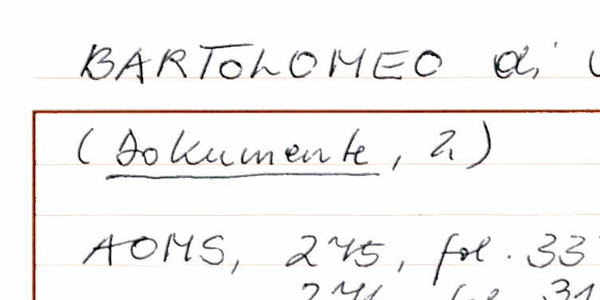 BARTOLOMEO di
(Dokumente, 2)
AOMS, 275, fol. 33